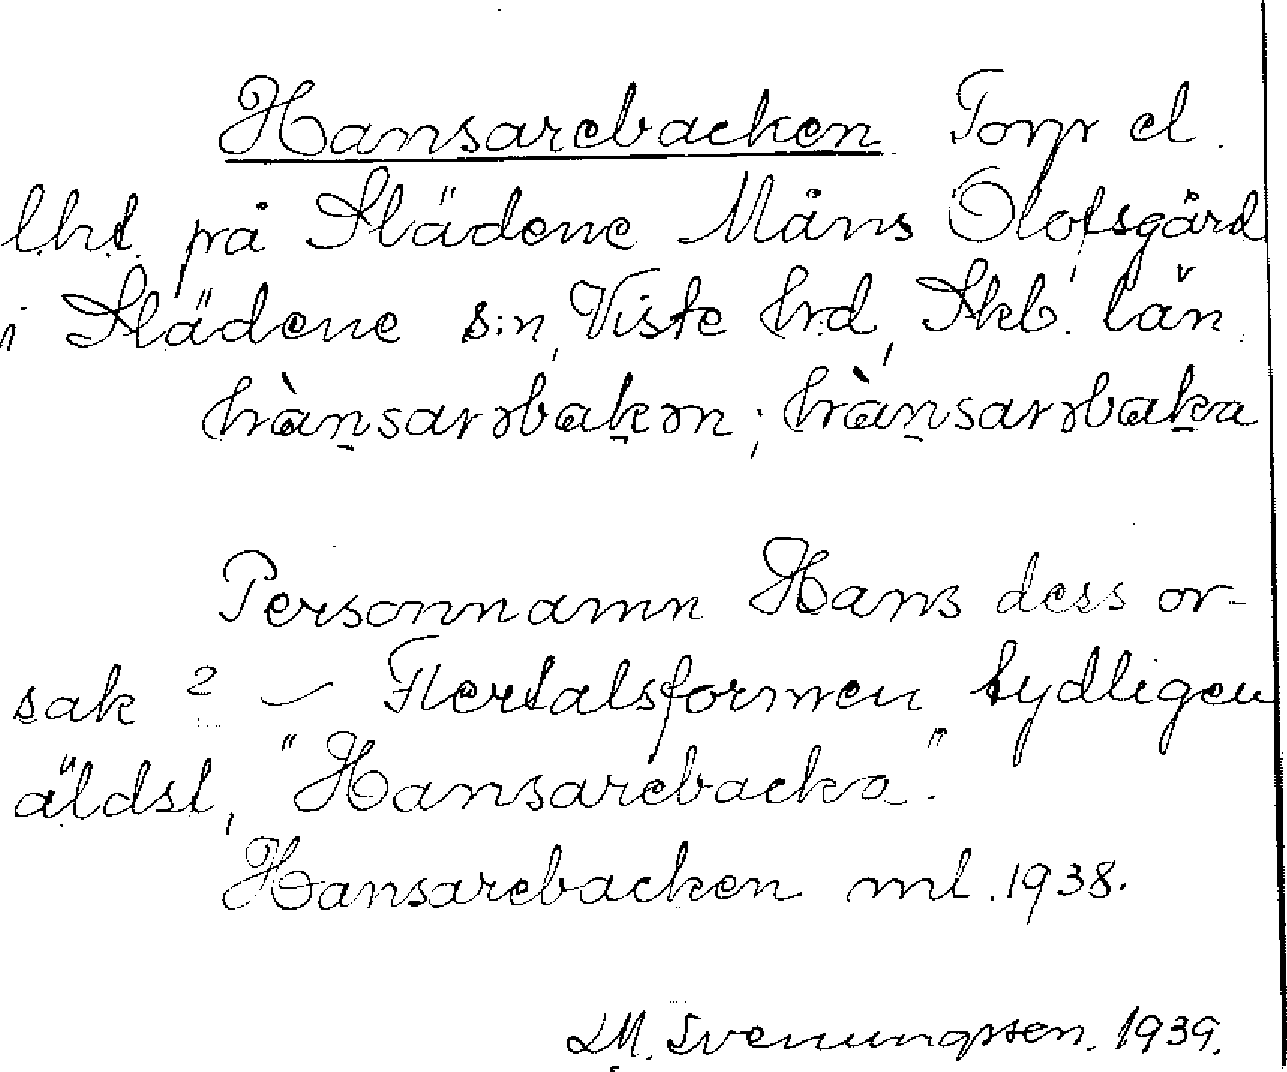 Hansarebacken Torp el.
lht. på Slädene Måns Olofsgård
i Slädene s:n, Viste hrd, Skb. län.
hànsarəbakən; hànsarəbaka
Personnamn Hans dess or-
sak? – Flertalsformen tydligen
äldst, "Hansarebacka".
Hansarebacken ml. 1938.
Svenungsson. 1939.